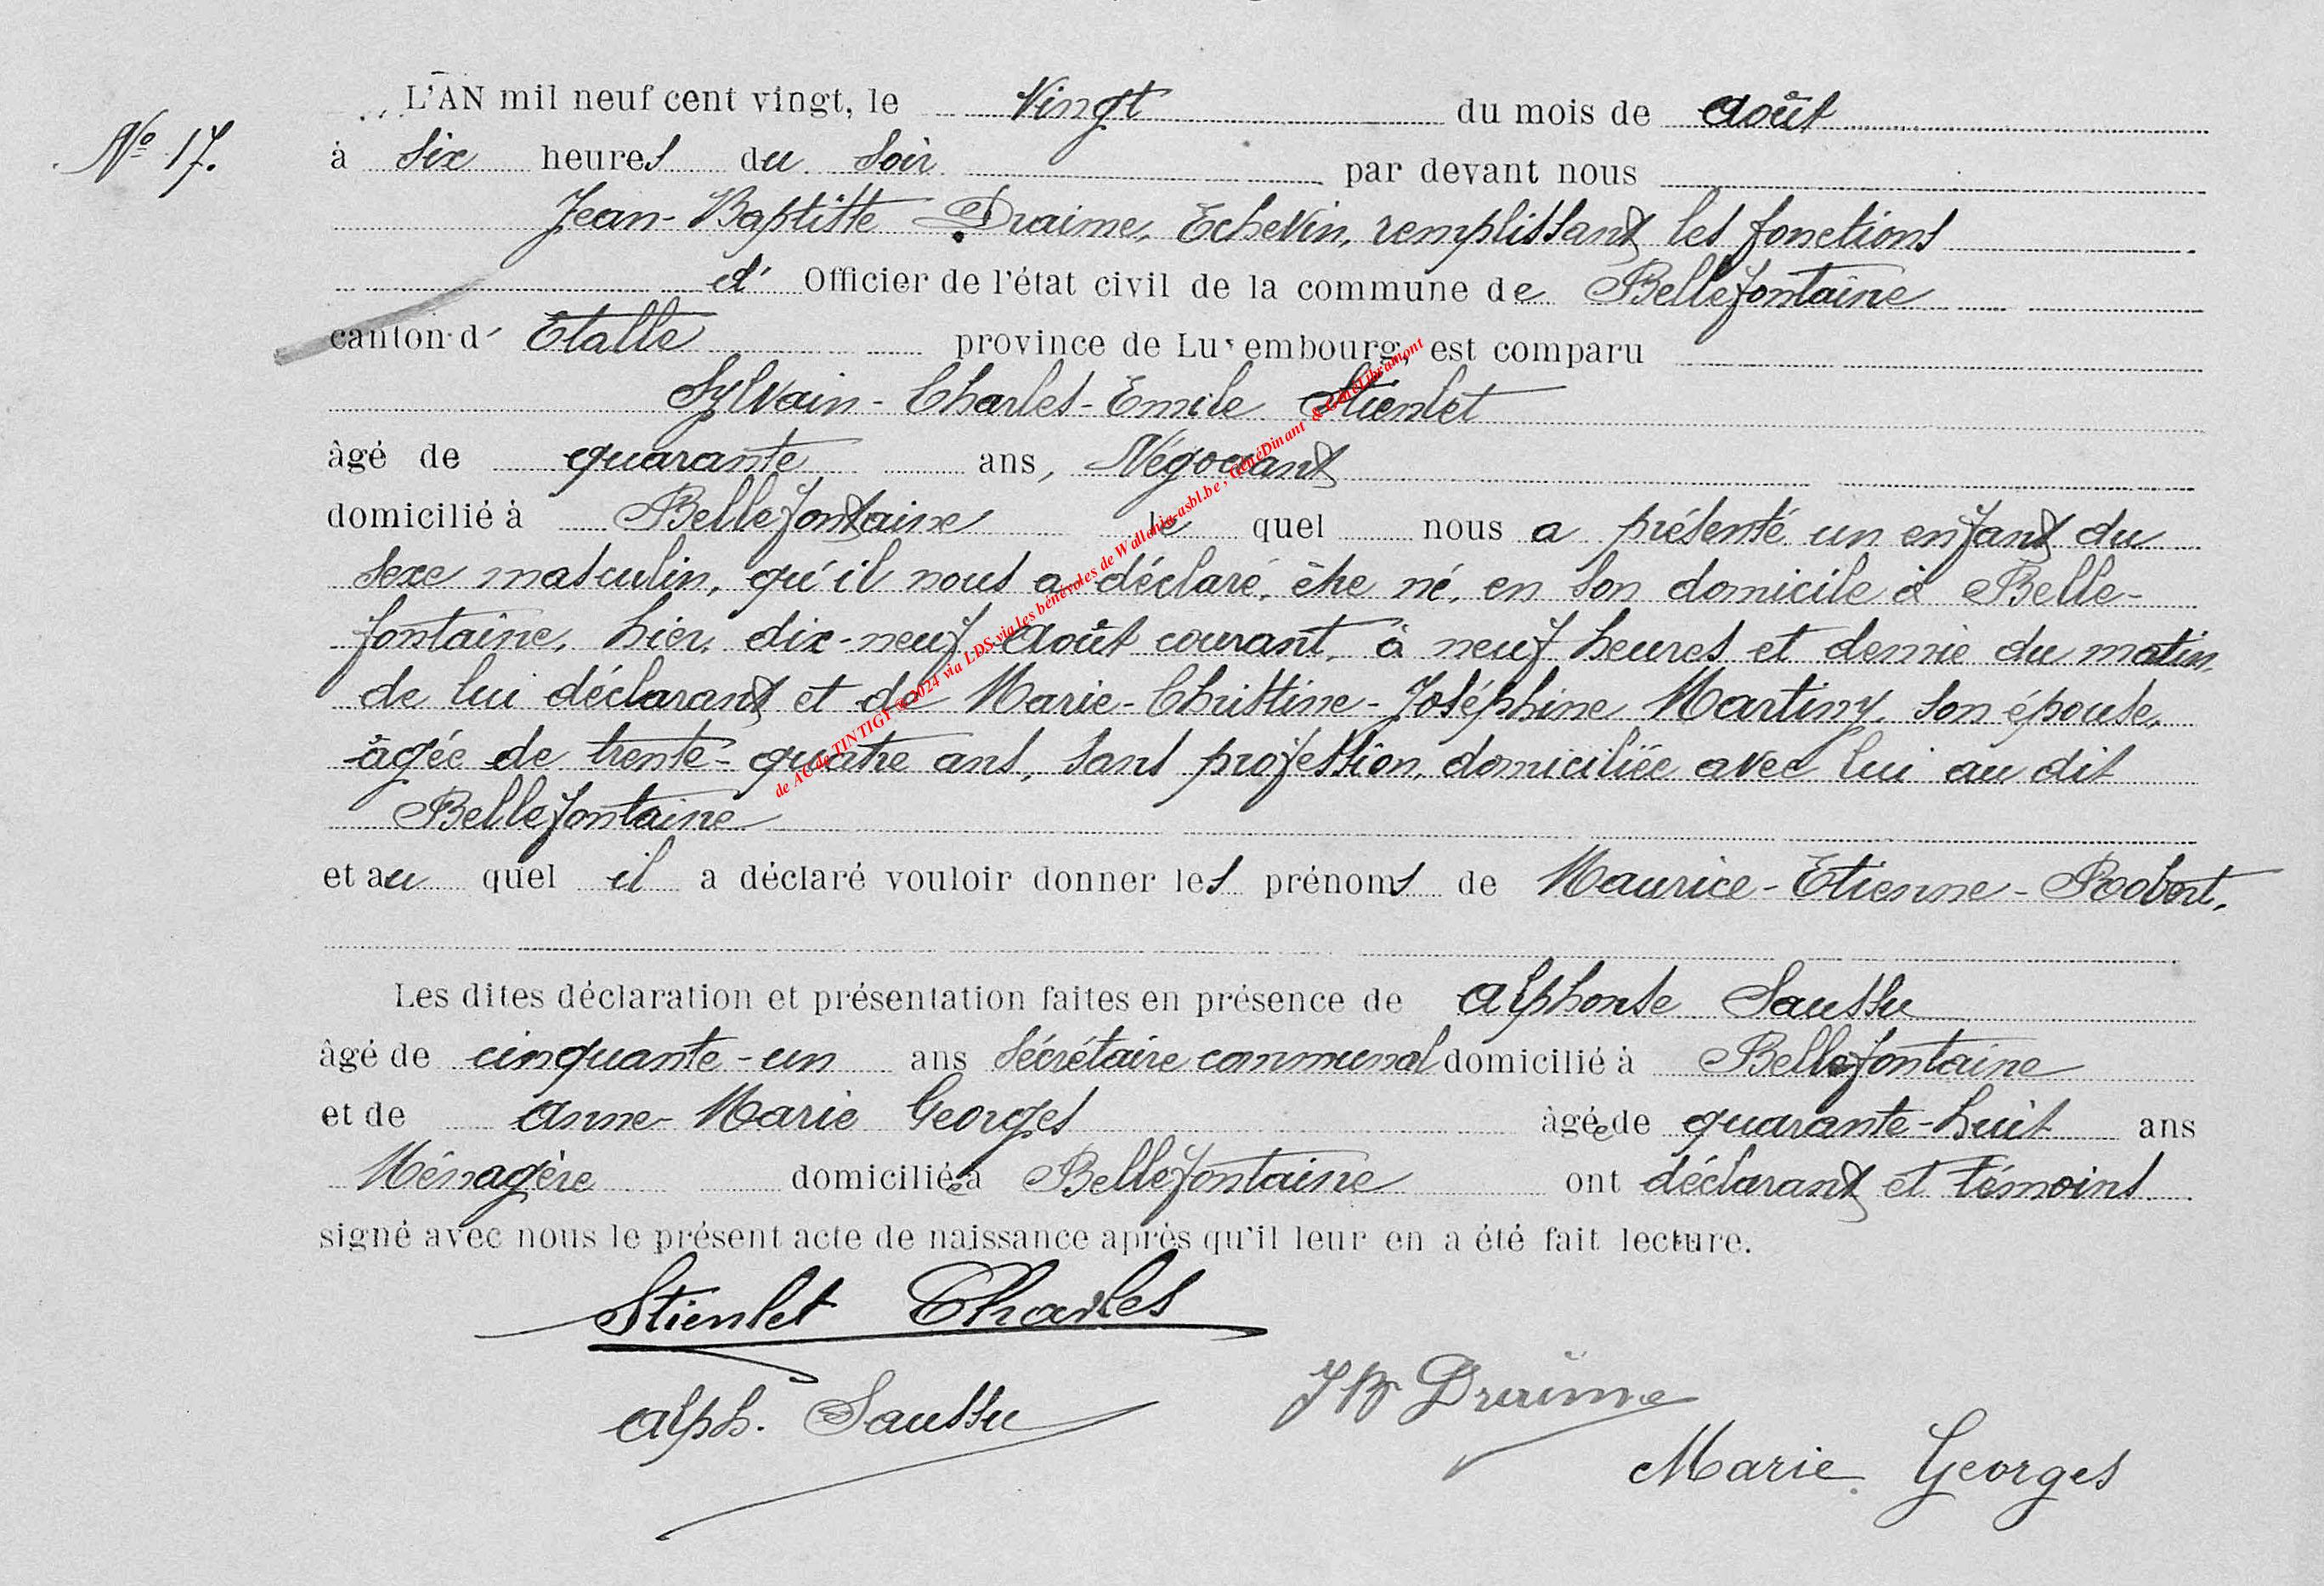 L'AN mil neuf cent vingt, le Vingt du mois de Août
N° 17.
à six heures du soir par devant nous
Jean-Baptiste Draime, Echevin, remplissant les fonctions
d' Officier de l'état civil de la commune de Bellefontaine
canton d' Etalle province de Luxembourg, est comparu
Sylvain-Charles-Emile Stienlet
âgé de quarante ans, Négociant
domicilié à Bellefontaine le quel nous a présenté un enfant du
sexe masculin, qu'il nous a déclaré, être né, en son domicile à Belle-
fontaine, hier, dix-neuf Août courant, à neuf heures et demie du matin,
de lui déclarant et de Marie-Christine-Joséphine Martiny, son épouse,
âgée de trente-quatre ans, sans profession, domiciliée avec lui au dit
Bellefontaine
et au quel il a déclaré vouloir donner les prénoms de Maurice-Etienne-Robert.
Les dites déclaration et présentation faites en présence de Alphonse Saussu
âgé de cinquante-un ans sécrétaire communal domicilié à Bellefontaine
et de Anne-Marie Georges âgée de quarante-huit ans
Ménagère domiciliée à Bellefontaine ont déclarant et témoins
signé avec nous le présent acte de naissance après qu'il leur en a été fait lecture.
Stienlet Charles
JB Draime
Alph. Saussu
Marie Georges
de AC de TINTIGNY © 2024 via LDS, via les bénévoles de Wallonia-asbl.be, GénéDinant & GénéLibramont